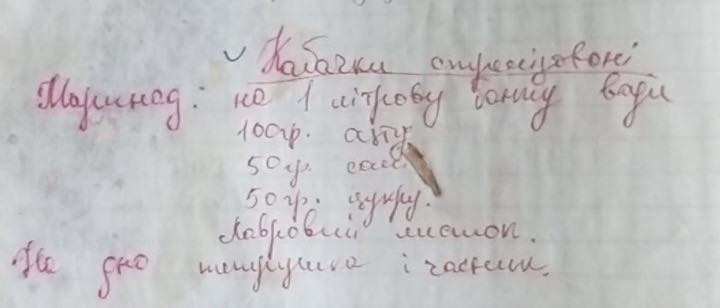 Кабачки стрелізовані
Маринад: на 1 літрову банку води
100гр. оцту
50гр. солі
50гр. цукру.
Лавровий листок.
На дно петрушка і часник.